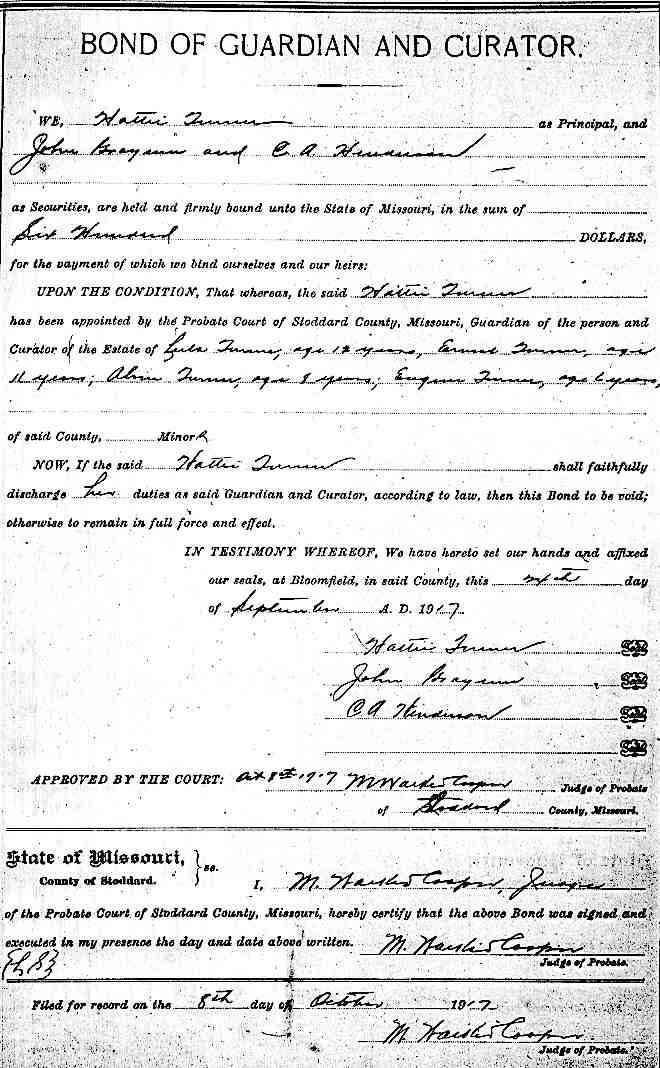 BOND OF GUARDIAN AND CURATOR.
WE, Hattie Turner as Principal, and
John Brayson and C. A. Henderson
as Securities, are held and firmly bound unto the State of Missouri, in the sum of
Six Hundred DOLLARS,
for the payment of which we bind ourselves and our heirs:
UPON THE CONDITION, That whereas, the said Hattie Turner
has been appointed by the Probate Court of Stoddard County, Missouri, Guardian of the person and
Curator of the Estate of Lula Turner, age 12 years, Ernest Turner, age
11 years; Turner, age 8 years; Eugene Turner, age 6 years,
of said County, Minors
NOW, If the said Hattie Turner shall faithfully
discharge her duties as said Guardian and Curator, according to law, then this Bond to be void;
otherwise to remain in full force and effect.
IN TESTIMONY WHEREOF, We have hereto set our hands and affixed
our seals, at Bloomfield, in said County, this day
of September A. D. 1917.
Hattie Turner Seal
John Brayson Seal
C A Henderson Seal
Seal
APPROVED BY THE COURT: Oct 8th 1917 M Cooper Judge of Probate
of Stoddard County, Missouri.
State of Missouri,
County of Stoddard. } ss.
I, M. Cooper, Judge
of the Probate Court of Stoddard County, Missouri, hereby certify that the above Bond was signed and
executed in my presence the day and date above written. M. Cooper
Judge of Probate.
Filed for record on the 8th day of October 1917
M. Cooper
Judge of Probate.